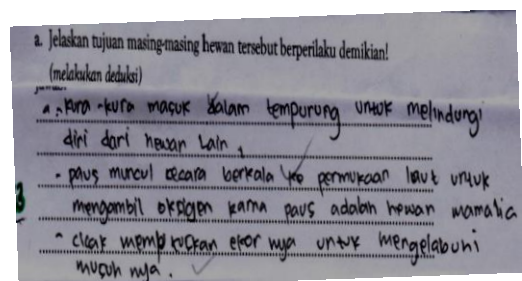 a. Jelaskan tujuan masing-masing hewan tersebut berperilaku demikian!
(melakukan deduksi)
a. - kura-kura masuk dalam tempurung untuk melindungi
diri dari hewan lain,
- paus muncul secara berkala ke permukaan laut untuk
mengambil oksigen karna paus adalah hewan mamalia
- cicak memputuskan ekor nya untuk mengelabuhi
musuh nya.